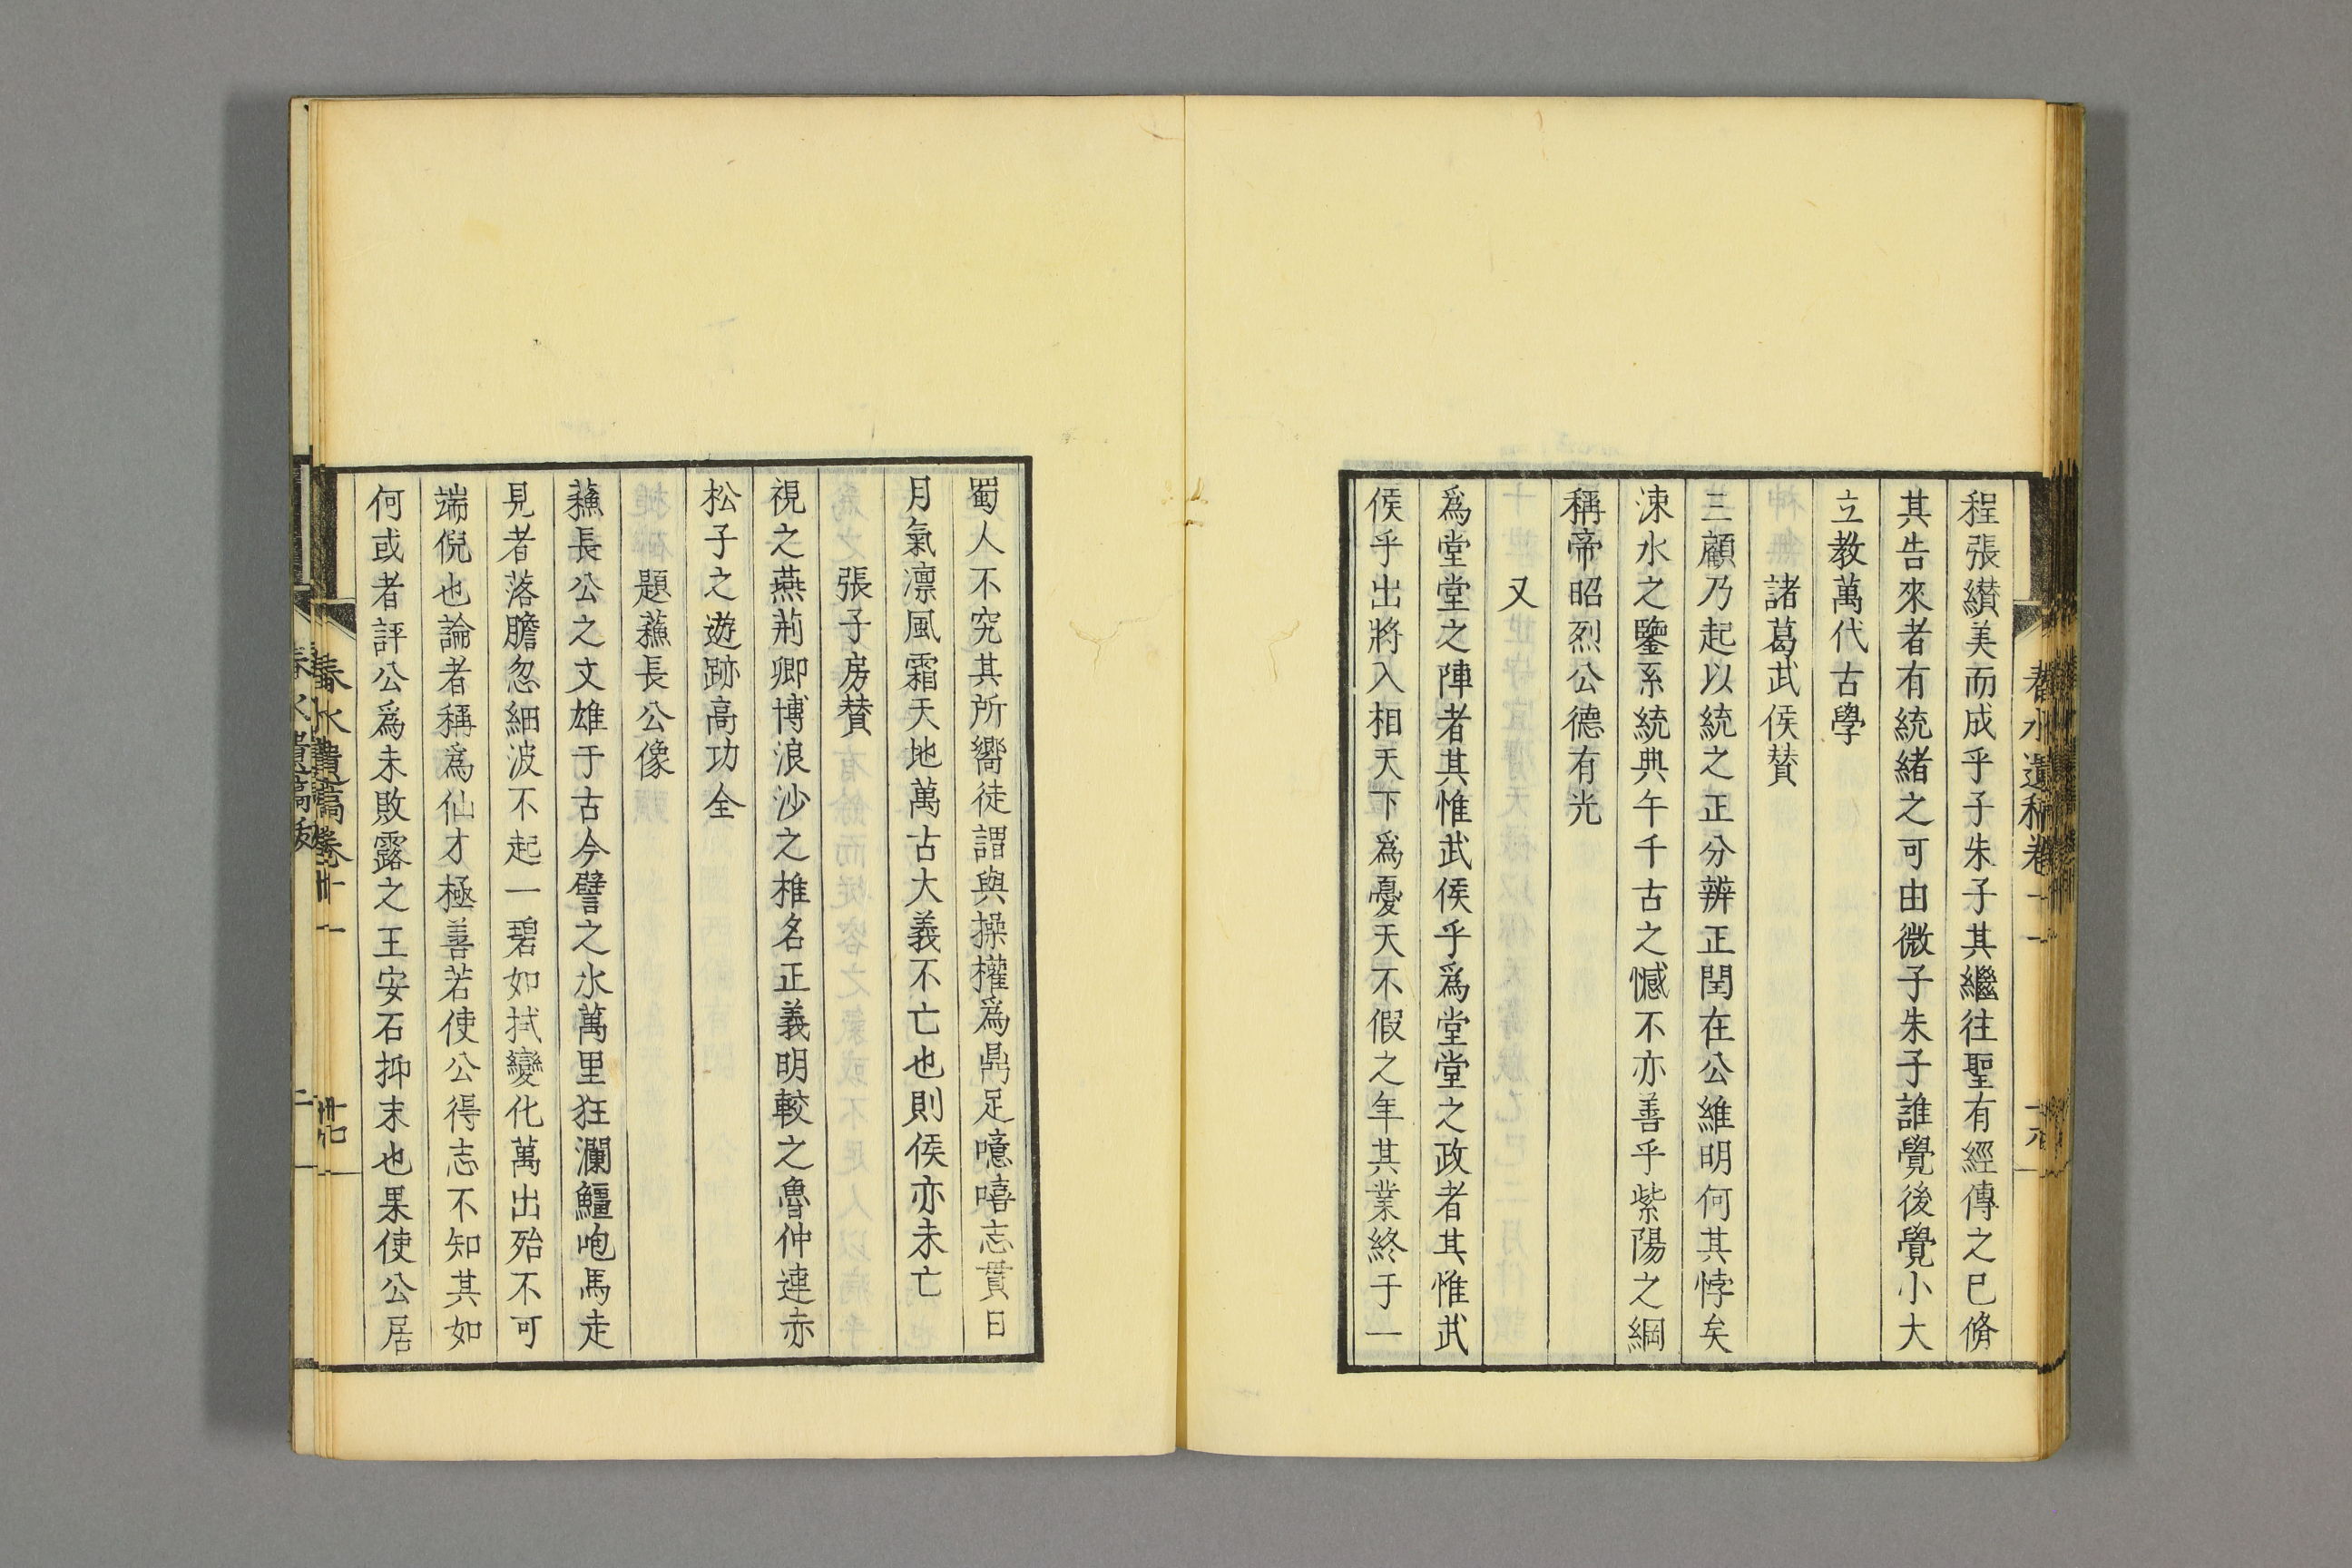 程張纉美而成乎子朱子其繼往聖有經傳之已脩
其告來者有統緒之可由微子朱子誰覺後覺小大
立教萬代古學
諸葛武侯賛
三顧乃起以統之正分辨正閏在公維明何其悖矣
涑水之鑒系統典午千古之憾不亦善乎紫陽之綱
稱帝昭烈公德有光
又
爲堂堂之陣者其惟武侯乎爲堂堂之政者其惟武
侯乎出將入相天下爲憂天不假之年其業終于一
蜀人不究其所嚮徒謂與操權爲鼎足噫嘻志貫日
月氣凛風霜天地萬古大義不亡也則侯亦未亡
張子房賛
視之燕荊卿博浪沙之椎名正義明較之魯仲連赤
松子之遊跡高功全
題蘓長公像
蘓長公之文雄于古今譬之水萬里狂瀾鱷咆馬走
見者落膽忽細波不起一碧如拭變化萬出殆不可
端倪也論者稱爲仙才極善若使公得志不知其如
何或者評公爲未敗露之王安石抑末也果使公居